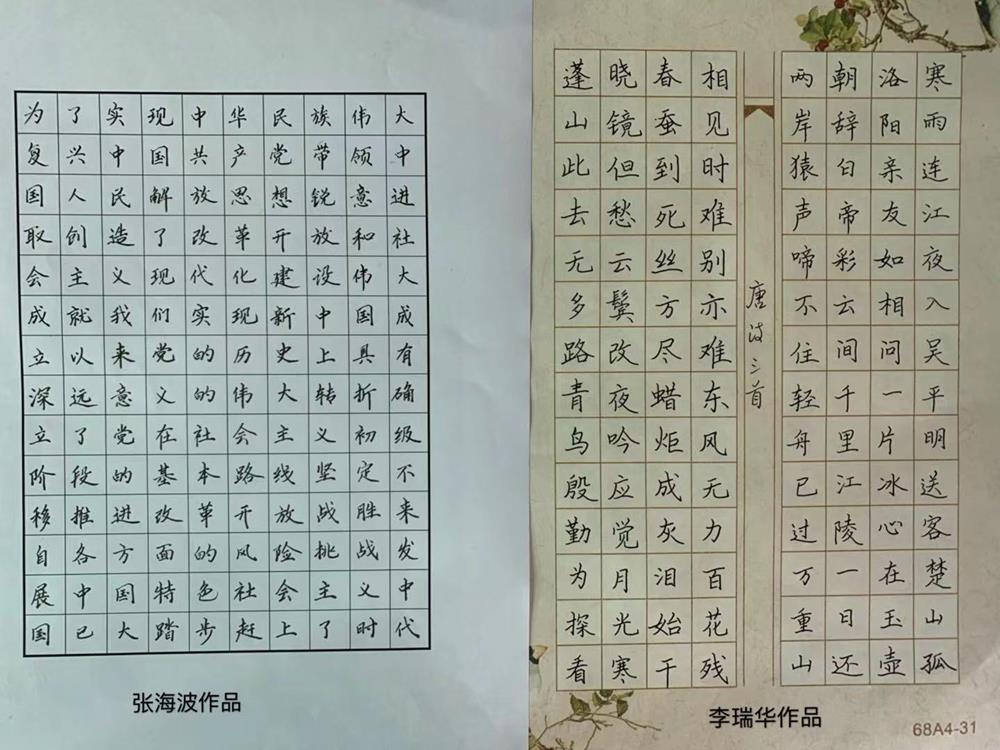 为了实现中华民族伟大
复兴中国共产党带领中
国人民解放思想锐意进
取创造了改革开放和社
会主义现代化建设伟大
成就我们实现新中国成
立以来党的历史上具有
深远意义的伟大转折确
立了党在社会主义初级
阶段的基本路线坚定不
移推进改革开放战胜来
自各方面的风险挑战发
展中国特色社会主义中
国已大踏步赶上了时代
张海波作品
寒雨连江夜入吴平明送客楚山孤
洛阳亲友如相问一片冰心在玉壶
朝辞白帝彩云间千里江陵一日还
两岸猿声啼不住轻舟已过万重山
唐诗三首
相见时难别亦难东风无力百花残
春蚕到死丝方尽蜡炬成灰泪始干
晓镜但愁云鬓改夜吟应觉月光寒
蓬山此去无多路青鸟殷勤为探看
李瑞华作品
68A4-31